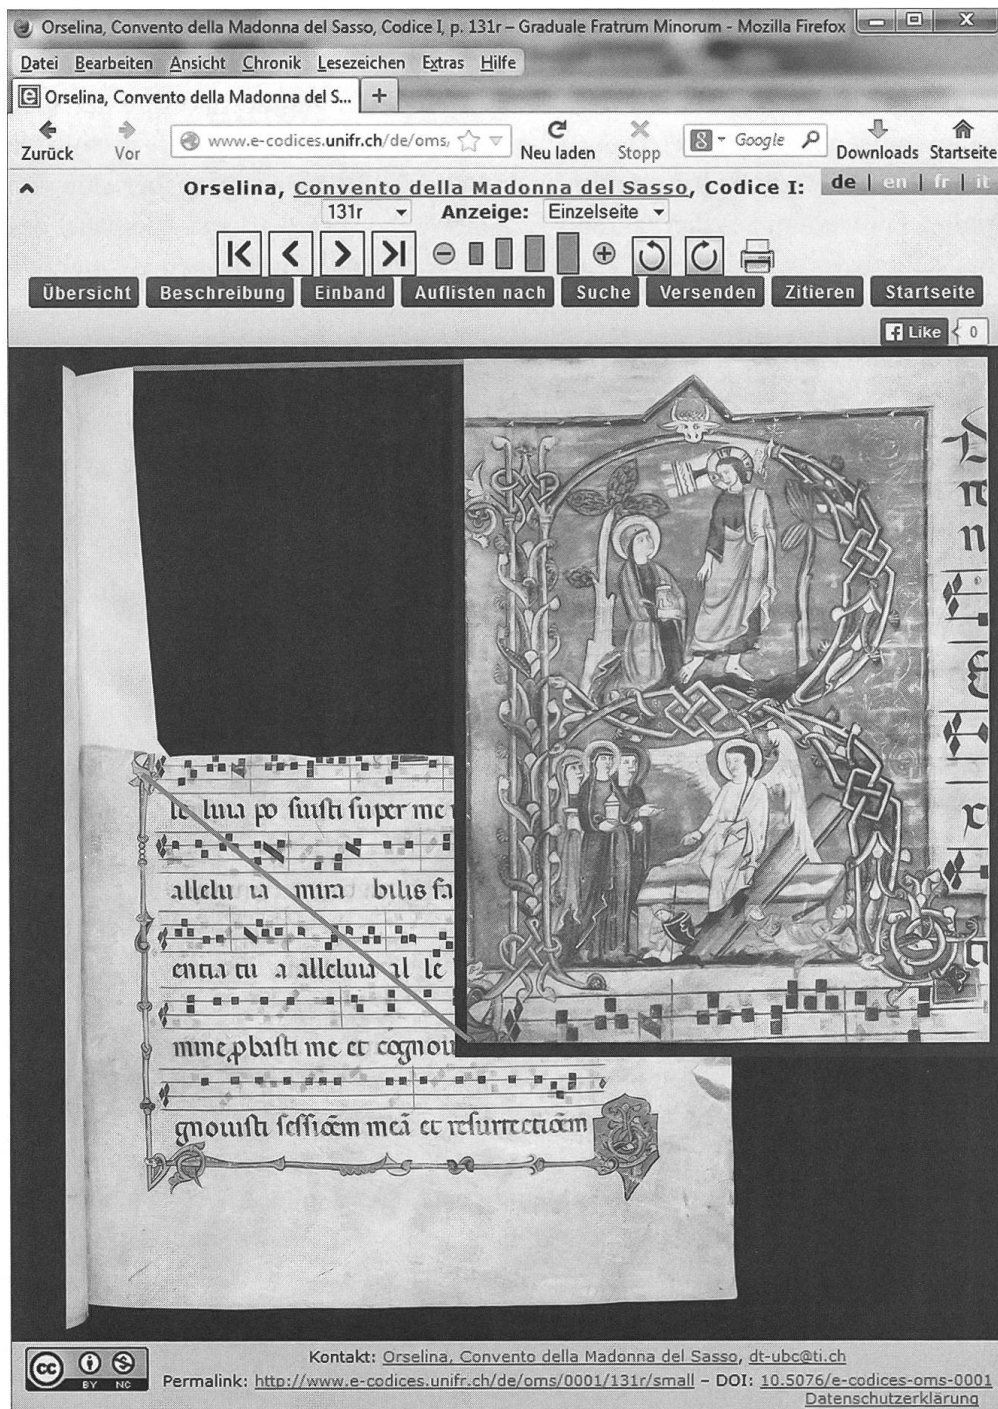 Orselina, Convento della Madonna del Sasso, Codice I, p. 131r – Graduale Fratrum Minorum - Mozilla Firefox
Datei Bearbeiten Ansicht Chronik Lesezeichen Extras Hilfe
Orselina, Convento della Madonna del S... +
Zurück Vor www.e-codices.unifr.ch/de/oms, Neu laden Stopp 8 Google Downloads Startseite
Orselina, Convento della Madonna del Sasso, Codice I: de | en | fr | it
131r Anzeige: Einzelseite
Übersicht Beschreibung Einband Auflisten nach Suche Versenden Zitieren Startseite
f Like 0
le luia po suisti super me
allelu ia mira bilis fa
entia tu a alleluia al le
mine ꝓbasti me et cognoui
gnouisti sessiōem meā et resurrectiōem
cc BY NC
Kontakt: Orselina, Convento della Madonna del Sasso, dt-ubc@ti.ch
Permalink: http://www.e-codices.unifr.ch/de/oms/0001/131r/small – DOI: 10.5076/e-codices-oms-0001
Datenschutzerklärung